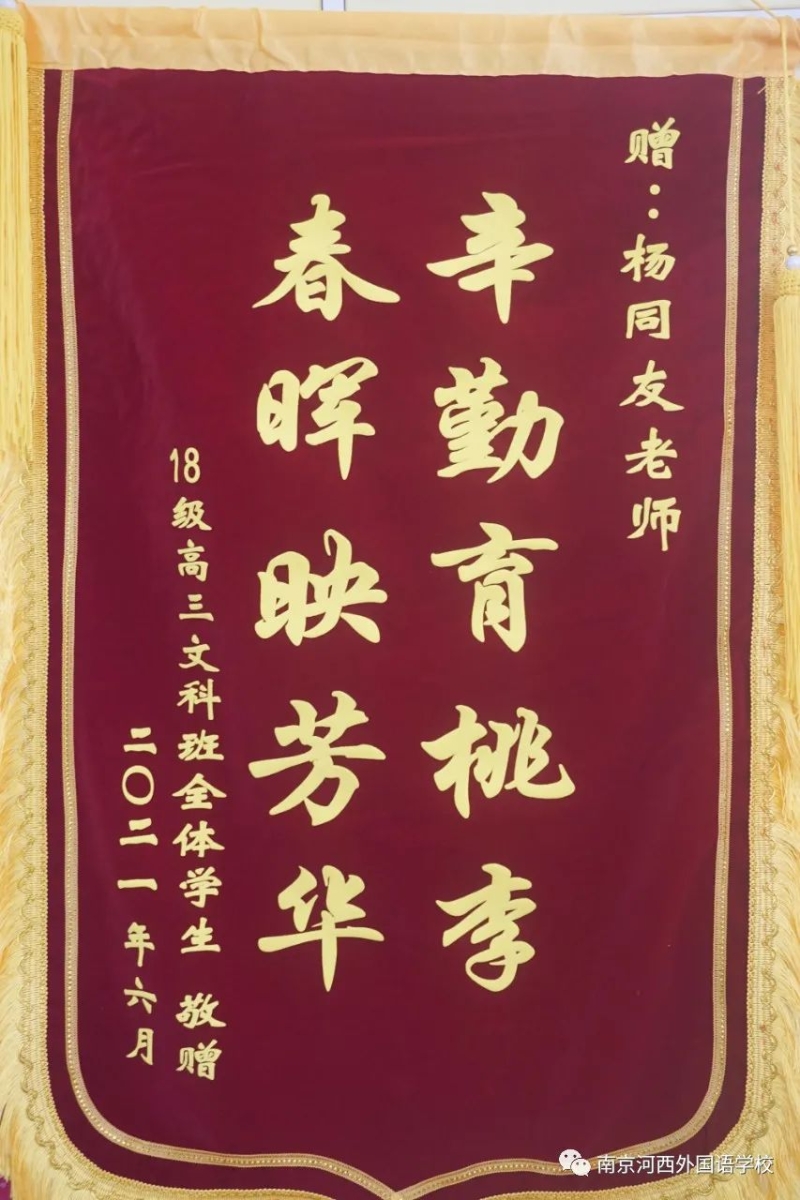 赠：杨同友老师
辛勤育桃李
春晖映芳华
18级高三文科班全体学生 敬赠
二〇二一年六月
南京河西外国语学校